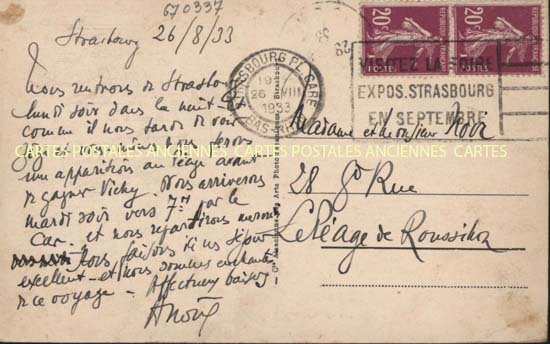 670337
Strasbourg 26/8/33
Nous rentrons de Strasbourg
lundi soir dans la nuit
comme il nous tarde de vous
une apparition au Péage avant
de gagner Vichy. Nous arriverons
mardi soir vers 7h par le
Car. et nous repartirons
Nous faisons ici un séjour
excellent et nous sommes enchantés
de ce voyage. Affectueux baisers
20c 20c
POSTES
STRASBOURG PL. GARE
19
26 VIII
1933
BAS-RHIN
VISITEZ LA FOIRE
EXPOS. STRASBOURG
EN SEPTEMBRE
CARTES POSTALES ANCIENNES CARTES POSTALES ANCIENNES CARTES
Madame et Monsieur
28 Gde Rue
Le Péage de Roussillon
Cie Alsacienne des Arts Photomécaniques, Strasbourg